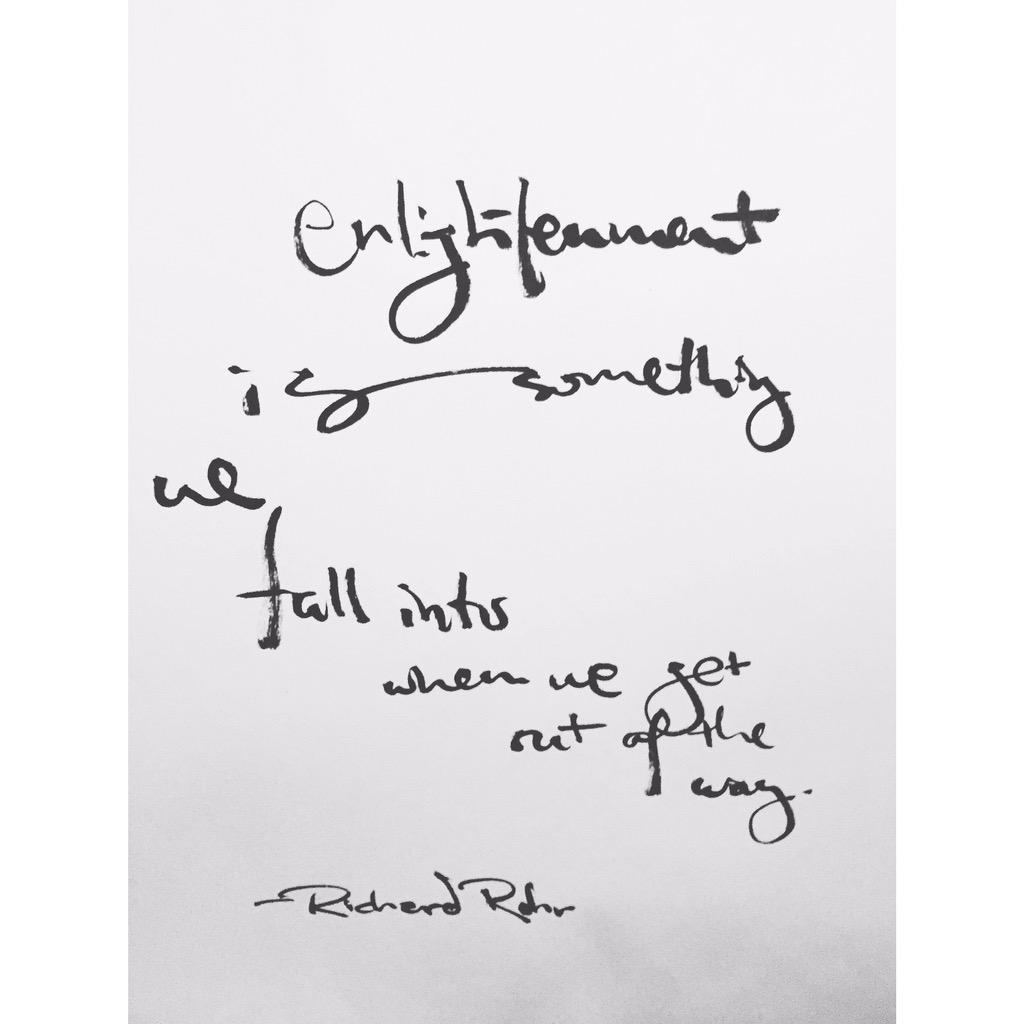 enlightenment
is something
we
fall into
when we get
out of the
way.
-Richard Rohr